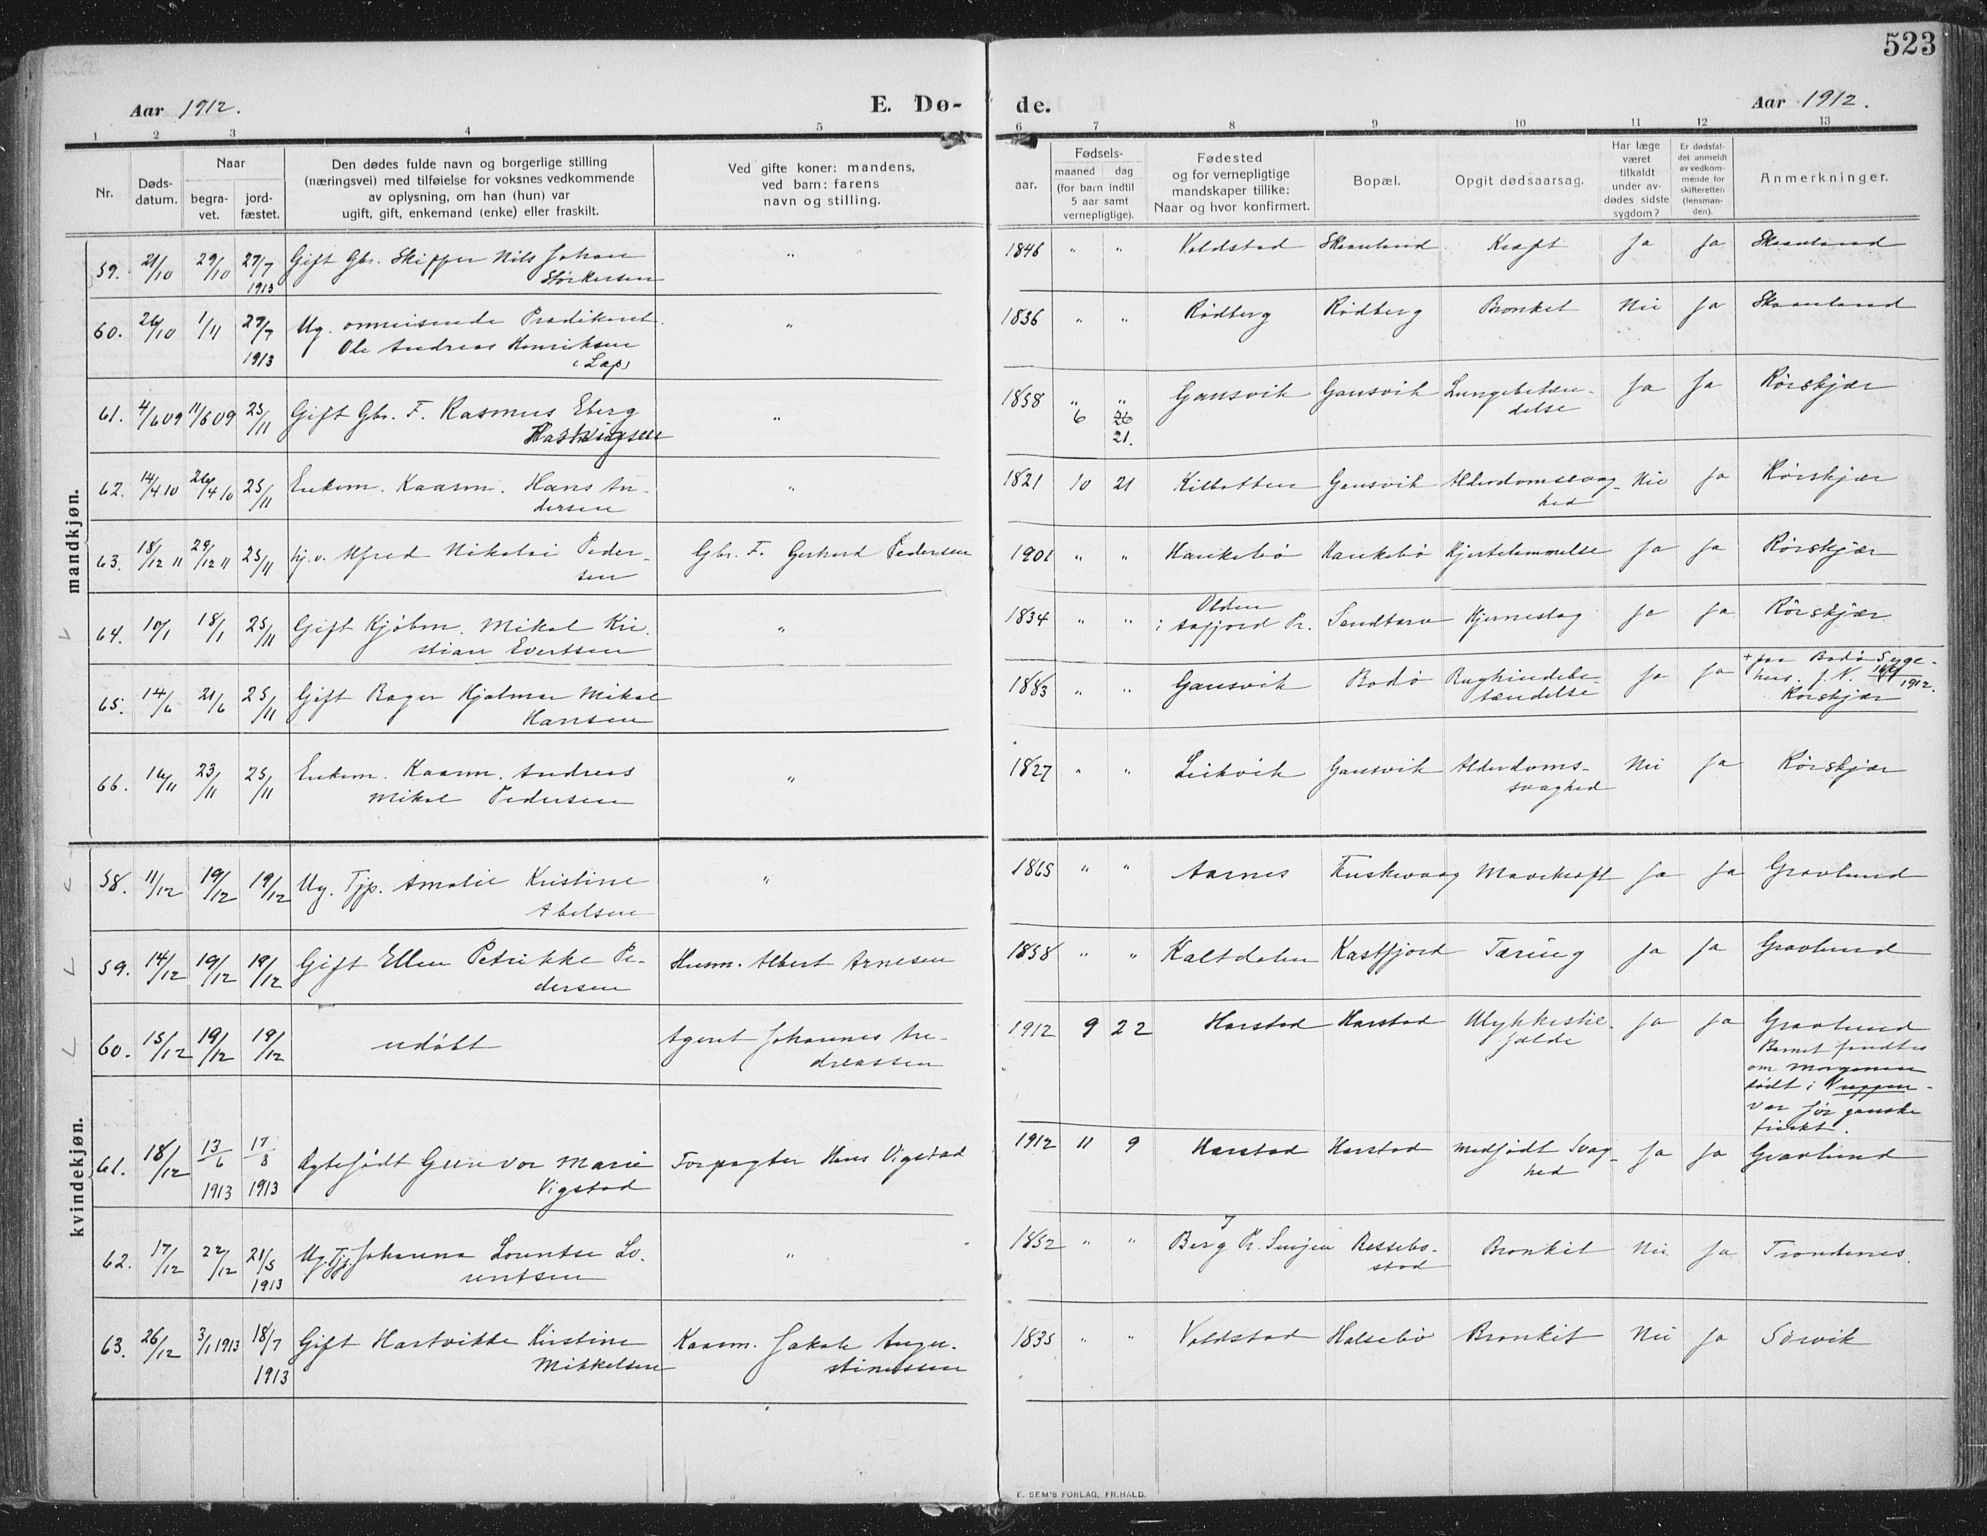 523
Aar 1912. E. Dø- de. Aar 1912.
1 2 3 4 5 6 7 8 9 10 11 12 13
Nr.
Døds-
datum.
Naar
begra-
vet.
jord-
fæstet.
Den dødes fulde navn og borgerlige stilling
(næringsvei) med tilføielse for voksnes vedkommende
av oplysning, om han (hun) var
ugift, gift, enkemand (enke) eller fraskilt.
Ved gifte koner: mandens,
ved barn: farens
navn og stilling.
Fødsels-
aar.
maaned dag
(for barn indtil
5 aar samt
vernepligtige).
Fødested
og for vernepligtige
mandskaper tillike:
Naar og hvor konfirmert.
Bopæl.
Opgit dødsaarsag.
Har læge
været
tilkaldt
under av-
dødes sidste
sygdom?
Er dødsfal-
det anmeldt
av vedkom-
mende for
skifteretten
(lensman-
den).
Anmerkninger.
mandkjøn.
59. 21/10 29/10 27/7 Gift Gbr. Skipper Nils Johan " 1846 " " Voldstad Skaanland Kræft Ja Ja Skaanland
1913 Størkersen
60. 26/10 1/11 27/7 Ug. omreisende Prædikant " 1836 " " Rødberg Rødberg Bronkit Nei Ja Skaanland
1913 Ole Andreas Henriksen
(Lap)
61. 4/6 09 11/6 09 25/11 Gift Gbr. F. Rasmus Eberg " 1858 " " Gansvik Gansvik Lungebetæn- Ja Ja Rørskjær
Hartvigsen 6 26 delse
21.
62. 14/4 10 26/4 10 25/11 Enkem. Kaarm. Hans An- " 1821 10 21 Kilbotten Gansvik Alderdomssvag- Nei Ja Rørskjær
dersen hed
63. 18/12 11 29/12 11 25/11 hj. v. Alfred Nikolai Peder- Gbr. F. Gerhard Pedersen 1901 " " Haukebø Haukebø Hjertelammelse Ja Ja Rørskjær
sen
64. 10/1 18/1 25/11 Gift Kjøbm. Mikal Kri- " 1834 " " Olden Sandtorv Hjerneslag Ja Ja Rørskjær
stian Evertsen i Aafjord Pr.
65. 14/6 21/6 25/11 Gift Bager Hjalmar Mikal " 1883 " " Gansvik Bodø Bughindebe- Ja Ja + paa Bodø Syge-
Hansen tændelse hus. f. N. 1912.
Rørskjær
66. 16/11 23/11 25/11 Enkem. Kaarm. Andreas " 1827 " " Leikvik Gansvik Alderdoms- Nei Ja Rørskjær
Mikal Pedersen svaghed
kvindekjøn.
58. 11/12 19/12 19/12 Ug. Tjp. Amalie Kristine " 1865 " " Aarnes Fuskevaag Mavekræft Ja Ja Gravlund
Abelsen
59. 14/12 19/12 19/12 Gift Ellen Petrikke Pe- Husm. Albert Arnesen 1858 " " Kaltdalen Kastfjord Tæring Ja Ja Gravlund
dersen
60. 15/12 19/12 19/12 udøbt Agent Johannes An- 1912 9 22 Harstad Harstad Ulykkestil- Ja Ja Gravlund
dreassen fælde Barnet fandtes
om morgenen
dødt i Vuggen -
var før ganske
friskt.
61. 18/12 13/6 17/8 Ægtefødt Gunvor Marie Forpagter Hans Vigstad 1912 11 9 Harstad Harstad medfødt Svag- Ja Ja Gravlund
1913 1913 Vigstad hed
62. 17/12 22/12 21/5 Ug. Tjp. Johanna Lorentse Lo- " 1852 " " Berg Pr. Senjen Ressebo- Bronkit Nei Ja Trondenes.
1913 rentsen stad
63. 26/12 3/1 1913 18/7 Gift Hartvikke Kirstine Kaarm. Jakob Augu- 1835 " " Voldstad Halsebø Bronkit Nei Ja Sørvik
1913 Mikkelsen stinussen
E. SEM'S FORLAG, FR.HALD.